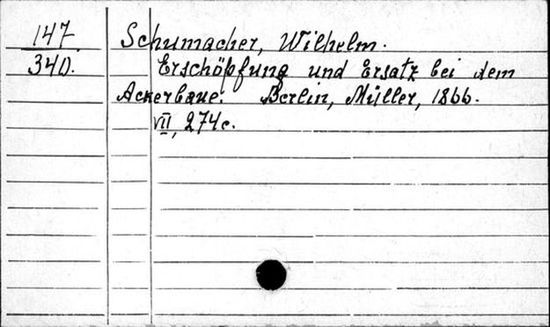 147
340.
Schumacher, Wilhelm.
Erschöpfung und Ersatz bei dem
Ackerbaue. Berlin, Müller, 1866.
VII, 274c.